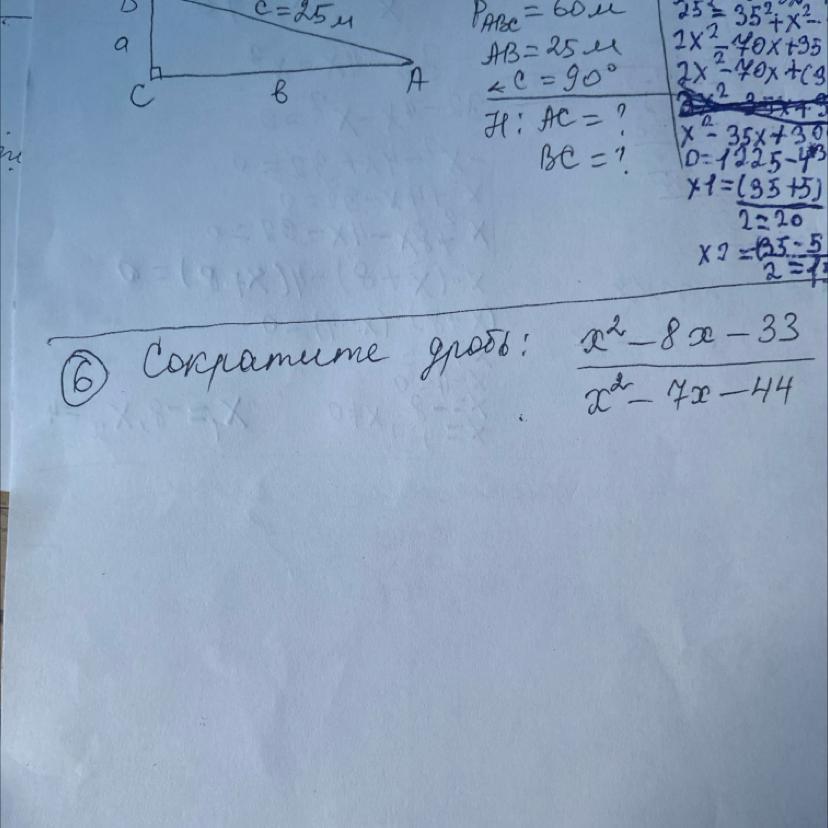 c = 25 м
a
C
в
A
P_ABC = 60 м
AB = 25 м
∠C = 90°
Н: AC = ?
BC = ?
25² = 35² + x² -
2x² - 70x + 35
2x² - 70x + (3
x² - 35x + 30
D = 1225 - 4*3
x1 = (35+5)
2 = 20
x2 = (35-5
2 = 15
⑥ Сократите дробь: x² - 8x - 33
x² - 7x - 44